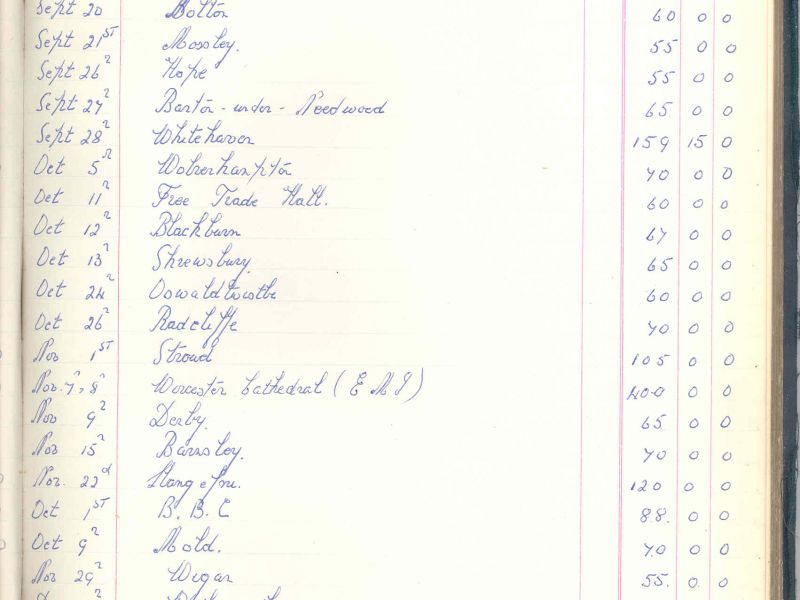 Sept 20 Bolton 60 0 0
Sept 21ST Mossley. 55 0 0
Sept 26 Hope 55 0 0
Sept 27 Barton - under - Needwood 65 0 0
Sept 28 Whitehaven 159 15 0
Oct 5 Wolverhampton 70 0 0
Oct 11 Free Trade Hall. 60 0 0
Oct 12 Blackburn 67 0 0
Oct 13 Shrewsbury 65 0 0
Oct 24 Oswaldtwistle 60 0 0
Oct 26 Radcliffe 70 0 0
Nov 1ST Stroud 105 0 0
Nov. 7, 8 Worcester Cathedral (E M I) 400 0 0
Nov 9 Derby. 65 0 0
Nov 15 Barnsley. 70 0 0
Nov. 22 120 0 0
Oct 1ST B. B. C 88. 0 0
Oct 9 Mold. 70 0 0
Nov 29 Wigan 55. 0. 0